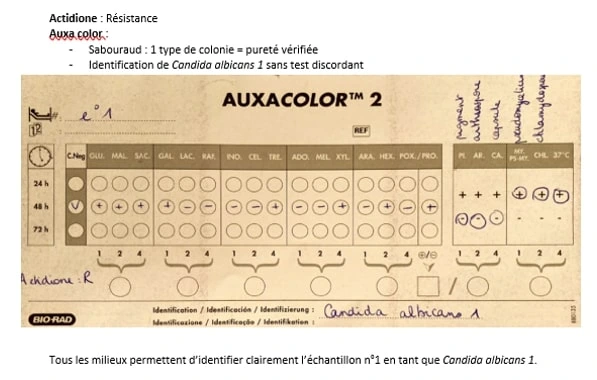 Actidione : Résistance
Auxa color :
- Sabouraud : 1 type de colonie = pureté vérifiée
- Identification de Candida albicans 1 sans test discordant
AUXACOLOR™ 2
#: e°1
12
REF
pigment arthrospore capsule pseudomycelium chlamydospore
C.Neg GLU. MAL. SAC. GAL. LAC. RAF. INO. CEL. TRE. ADO. MEL. XYL. ARA. HEX. POX./PRO. PI. AR. CA. MY. PS-MY. CHL. 37°C
24 h
+ + + + + +
48 h V + + + + - - - - + - - + - - - +
- - - - - -
72 h
1 2 4 1 2 4 1 2 4 1 2 4 1 2 4 ⊕/⊖ 1 2 4 1 2 4
Actidione : R
/
Identification / Identificación / Identifizierung : Candida albicans 1
Identificazione / Identificação / Identifikation :
BIO-RAD
Tous les milieux permettent d'identifier clairement l'échantillon n°1 en tant que Candida albicans 1.